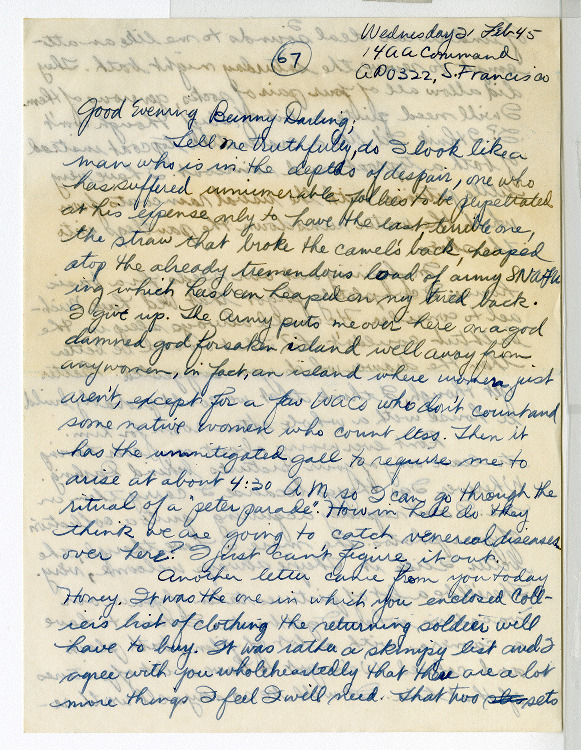 Wednesday 21 Feb 45
67
14 AA Command
APO 322, S. Francisco
Good Evening Bunny Darling;
Tell me truthfully, do I look like a
man who is in the depths of despair, one who
has suffered innumerable follies to be perpetrated
at his expense only to have the last terrible one,
the straw that broke the camel's back, heaped
atop the already tremendous load of army SNAFU
ing which has been heaped on my tired back.
I give up. The Army puts me over here on a god
damned god forsaken island well away from
any women, in fact, an island where women just
aren't, except for a few WACs who don't count and
some native women who count less. Then it
has the unmitigated gall to require me to
arise at about 4:30 AM so I can go through the
ritual of a "peter parade". How in hell do they
think we are going to catch venereal diseases
over here? I just can't figure it out.
Another letter came from you today
Honey. It was the one in which you enclosed Coll-
iers list of clothing the returning soldier will
have to buy. It was rather a skimpy list and I
agree with you wholeheartedly that there are a lot
more things I feel I will need. That two sets